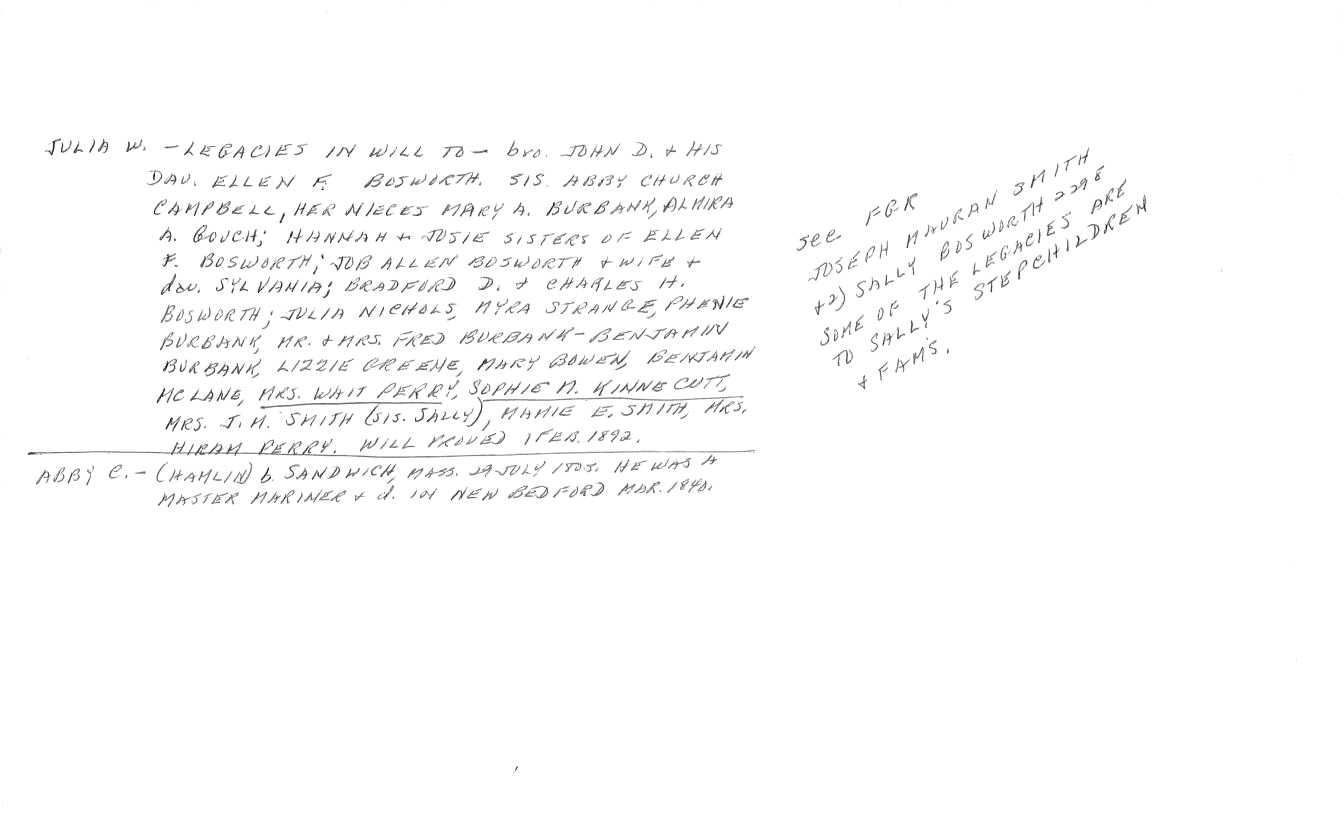 JULIA W. - LEGACIES IN WILL TO - bro. JOHN D. + HIS
DAU. ELLEN F. BOSWORTH. SIS. ABBY CHURCH
CAMPBELL, HER NIECES MARY A. BURBANK, ALMIRA
A. GOUCH; HANNAH + JOSIE SISTERS OF ELLEN
F. BOSWORTH; JOB ALLEN BOSWORTH + WIFE +
dau. SYLVANIA; BRADFORD D. + CHARLES H.
BOSWORTH; JULIA NICHOLS, MYRA STRANGE, PHENIE
BURBANK, MR. + MRS. FRED BURBANK - BENJAMIN
BURBANK, LIZZIE GREENE, MARY BOWEN, BENJAMIN
MCLANE, MRS. WAIT PERRY, SOPHIE M. KINNECUTT,
MRS. J. M. SMITH (SIS. SALLY), MAMIE E. SMITH, MRS.
HIRAM PERRY. WILL PROVED 1 FEB. 1892.
ABBY C. - (HAMLIN) b. SANDWICH, MASS. 29 JULY 1805. HE WAS A
MASTER MARINER + d. IN NEW BEDFORD MAR. 1840.
see FGR
JOSEPH MAURAN SMITH
+2) SALLY BOSWORTH 2298
SOME OF THE LEGACIES ARE
TO SALLY'S STEPCHILDREN
+ FAM'S.